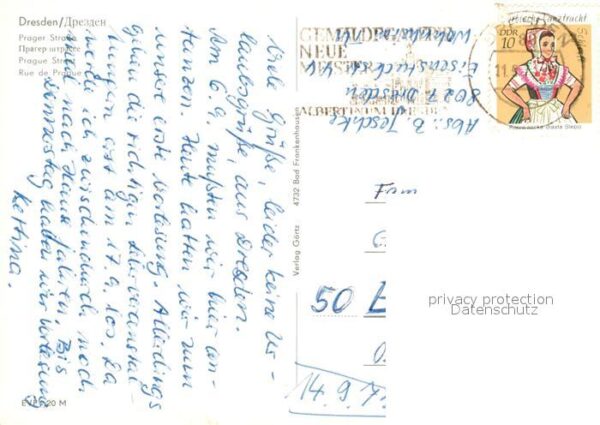 Dresden/Дрезден
Prager Straße
Прагер штрассе
Prague Street
Rue de Prague
Viele Grüße, leider keine Ur-
laubsgrüße, aus Dresden.
Am 6.9. mußten wir hier an-
tanzen. Heute hatten wir zum
unsere erste Vorlesung. Allerdings
gehen die richtigen Lehrveranstal-
tungen erst am 17.9. los. Da
werde ich zwischendurch noch
mal nach Hause fahren. Bis
Donnerstag haben wir Vorlesung
Kerstina.
EVP 0,20 M
Verlag Görtz 4732 Bad Frankenhausen
GEMÄLDEGALERIE
NEUE
MEISTER
ALBERTINUM DRESDEN
Abs.: B. Jeschke
8027 Dresden
Eisenstuckstr.
DDR
10
Sorbische Tanztracht
privacy protection
Datenschutz
50 E